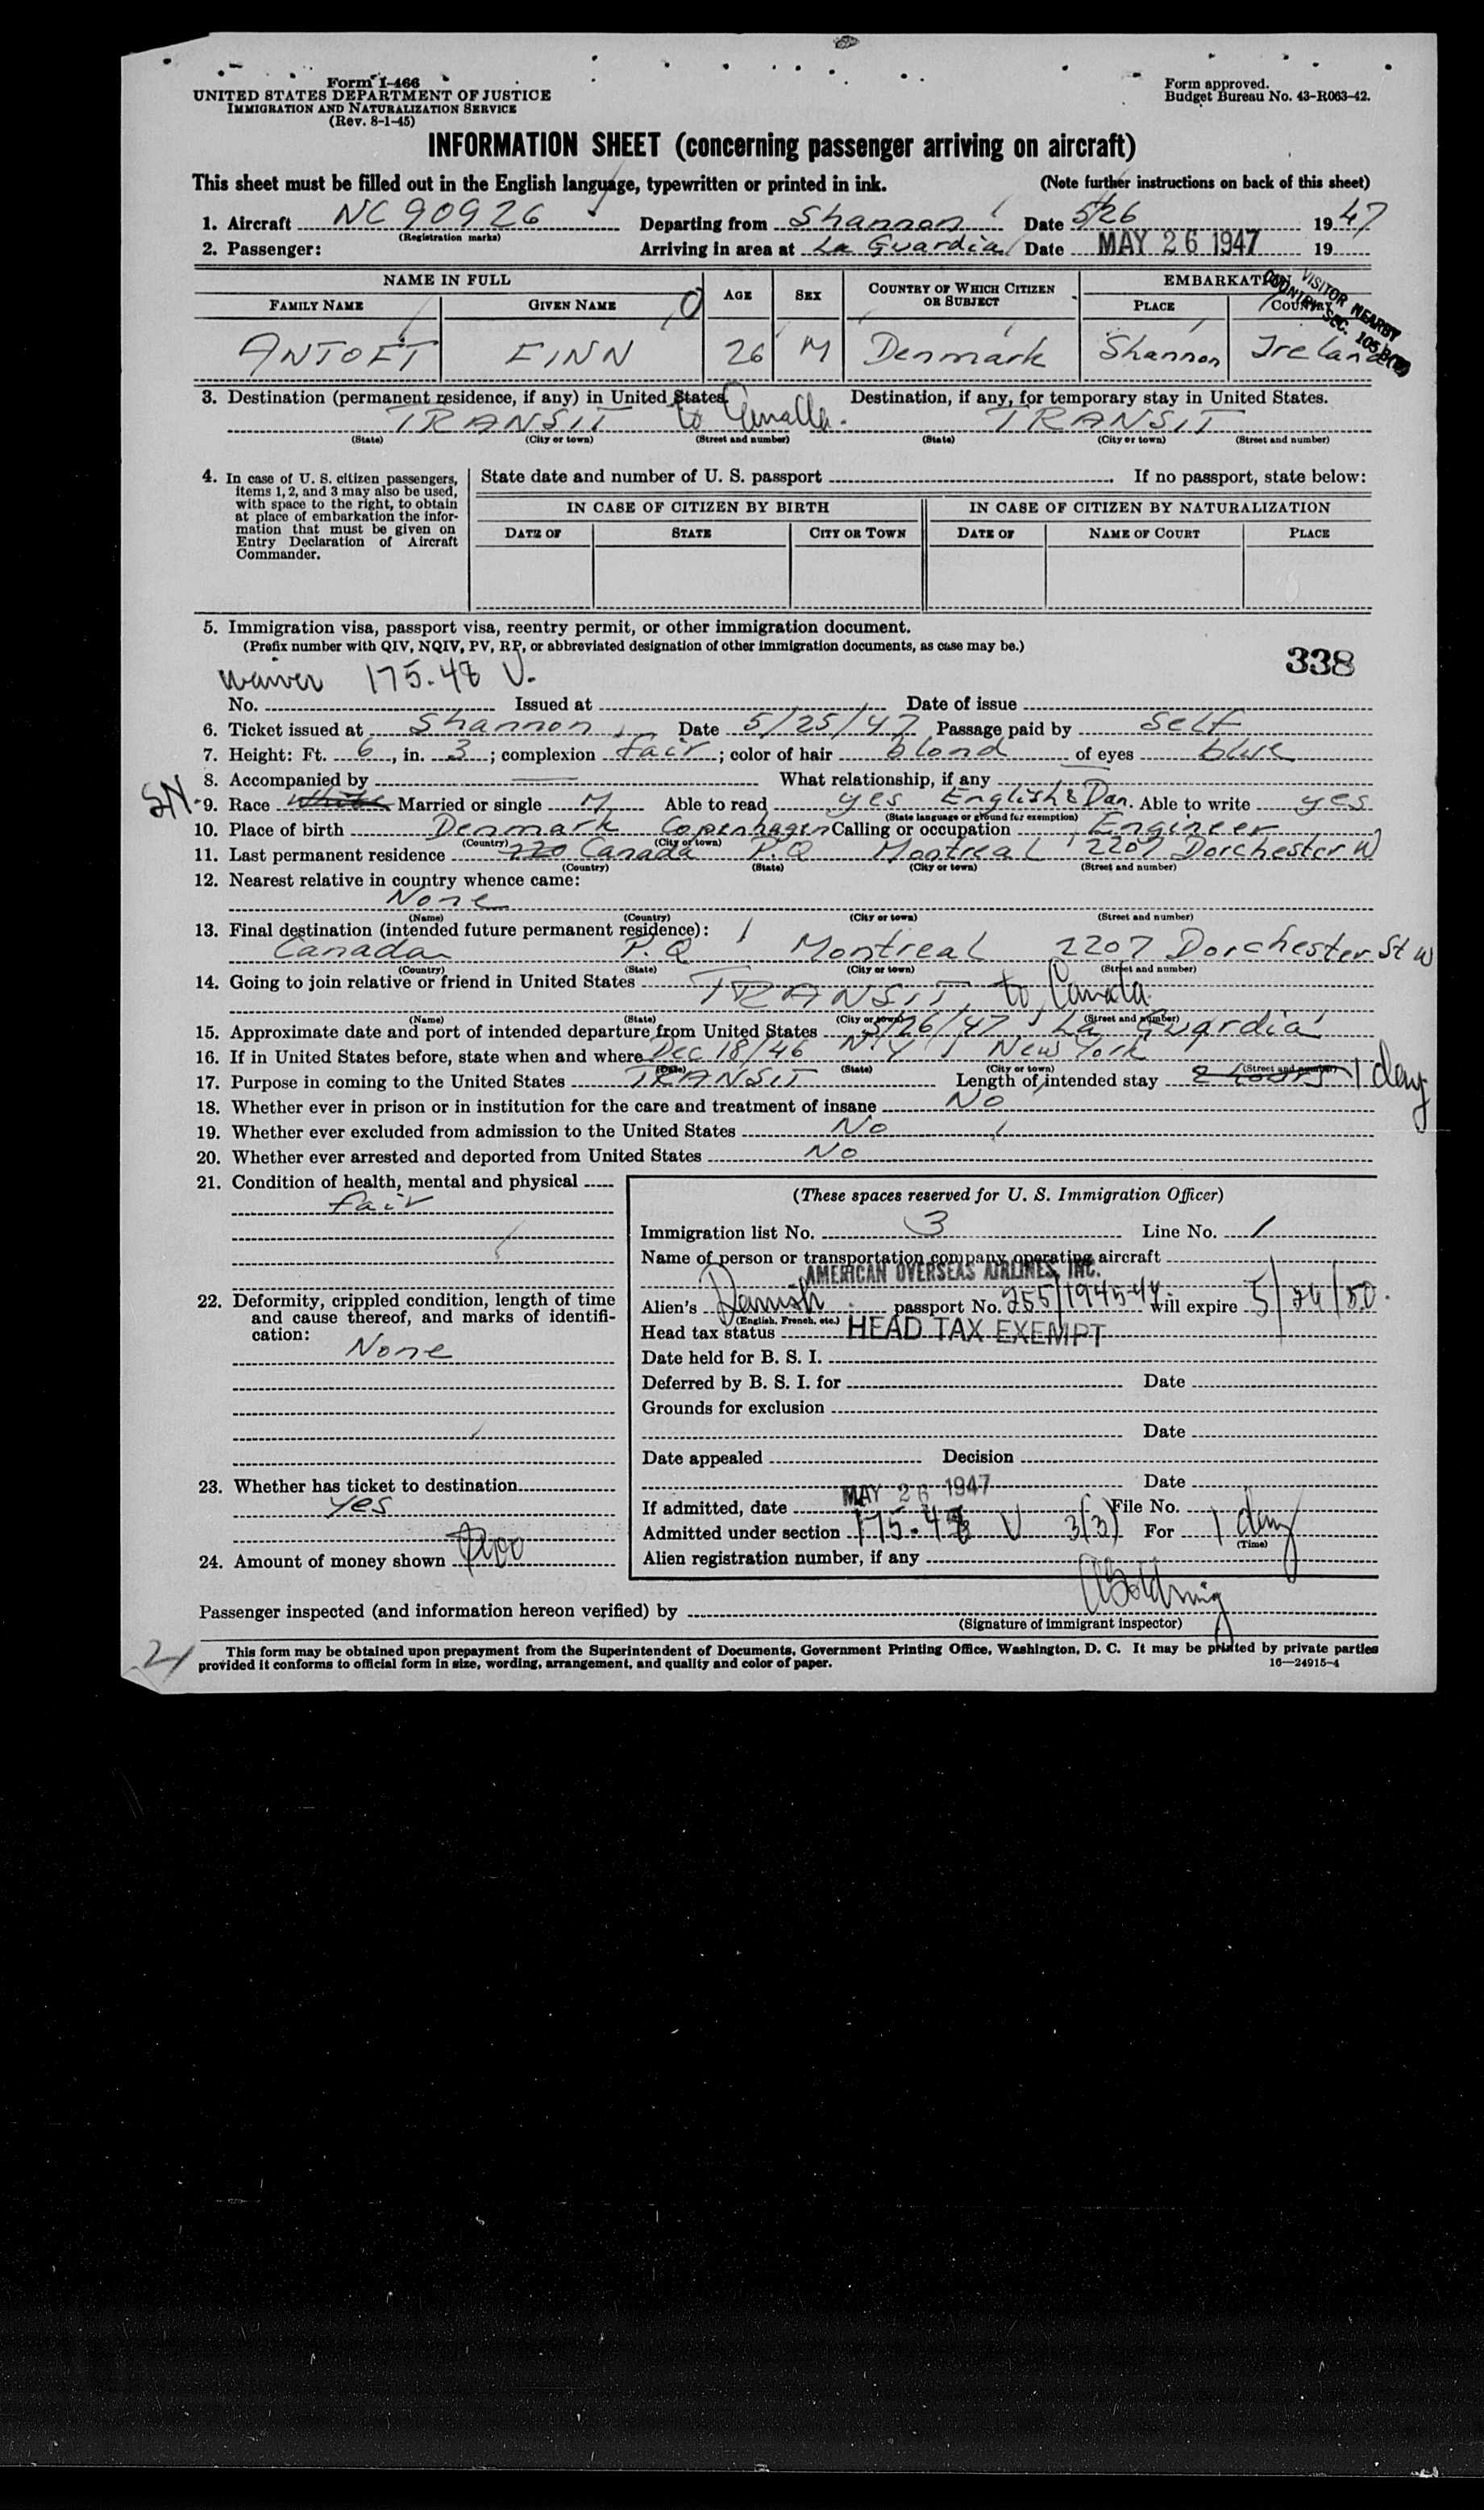 Form I-466
UNITED STATES DEPARTMENT OF JUSTICE
IMMIGRATION AND NATURALIZATION SERVICE
(Rev. 8-1-45)
Form approved.
Budget Bureau No. 43-R063-42.
INFORMATION SHEET (concerning passenger arriving on aircraft)
This sheet must be filled out in the English language, typewritten or printed in ink. (Note further instructions on back of this sheet)
1. Aircraft NC 90926 Departing from Shannon Date 5/26 1947
(Registration marks)
2. Passenger: Arriving in area at La Guardia Date MAY 26 1947 19
NAME IN FULL AGE SEX COUNTRY OF WHICH CITIZEN OR SUBJECT EMBARKATION
FAMILY NAME GIVEN NAME PLACE COUNTRY
VISITOR NEARBY
COUNTRY SEC.
ANTOFT FINN 26 M Denmark Shannon Ireland
3. Destination (permanent residence, if any) in United States. Destination, if any, for temporary stay in United States.
TRANSIT to Canada. TRANSIT
(State) (City or town) (Street and number) (State) (City or town) (Street and number)
4. In case of U. S. citizen passengers, items 1, 2, and 3 may also be used, with space to the right, to obtain at place of embarkation the information that must be given on Entry Declaration of Aircraft Commander.
State date and number of U. S. passport If no passport, state below:
IN CASE OF CITIZEN BY BIRTH IN CASE OF CITIZEN BY NATURALIZATION
DATE OF STATE CITY OR TOWN DATE OF NAME OF COURT PLACE
5. Immigration visa, passport visa, reentry permit, or other immigration document.
(Prefix number with QIV, NQIV, PV, RP, or abbreviated designation of other immigration documents, as case may be.)
338
waiver 175.48 V.
No. Issued at Date of issue
6. Ticket issued at Shannon Date 5/25/47 Passage paid by Self
7. Height: Ft. 6, in. 3; complexion fair; color of hair blond of eyes blue
8. Accompanied by — What relationship, if any
SN 9. Race White Married or single M Able to read yes English & Dan. Able to write yes
(State language or ground for exemption)
10. Place of birth Denmark Copenhagen Calling or occupation Engineer
(Country) (City or town)
11. Last permanent residence 220 Canada P.Q Montreal 2207 Dorchester W
(Country) (State) (City or town) (Street and number)
12. Nearest relative in country whence came:
None
(Name) (Country) (City or town) (Street and number)
13. Final destination (intended future permanent residence):
Canada P.Q Montreal 2207 Dorchester St W
(Country) (State) (City or town) (Street and number)
14. Going to join relative or friend in United States TRANSIT, to Canada.
(Name) (State) (City or town) (Street and number)
15. Approximate date and port of intended departure from United States 5/26/47 La Guardia
16. If in United States before, state when and where Dec 18/46 N.Y New York
(Date) (State) (City or town) (Street and number)
17. Purpose in coming to the United States TRANSIT Length of intended stay 2 hours 1 day
18. Whether ever in prison or in institution for the care and treatment of insane No
19. Whether ever excluded from admission to the United States No
20. Whether ever arrested and deported from United States No
21. Condition of health, mental and physical
fair
22. Deformity, crippled condition, length of time and cause thereof, and marks of identification:
None
23. Whether has ticket to destination
yes
24. Amount of money shown
(These spaces reserved for U. S. Immigration Officer)
Immigration list No. 3 Line No. 1
Name of person or transportation company operating aircraft
AMERICAN OVERSEAS AIRLINES, INC.
Alien's Danish passport No. 255/1945-44 will expire 5/24/50.
(English, French, etc.)
Head tax status HEAD TAX EXEMPT
Date held for B. S. I.
Deferred by B. S. I. for Date
Grounds for exclusion
Date
Date appealed Decision
Date
If admitted, date MAY 26 1947 File No.
Admitted under section 175.48 V 3(3) For 1 day
(Time)
Alien registration number, if any
Passenger inspected (and information hereon verified) by
(Signature of immigrant inspector)
This form may be obtained upon prepayment from the Superintendent of Documents, Government Printing Office, Washington, D. C. It may be printed by private parties
provided it conforms to official form in size, wording, arrangement, and quality and color of paper. 16—24915-4